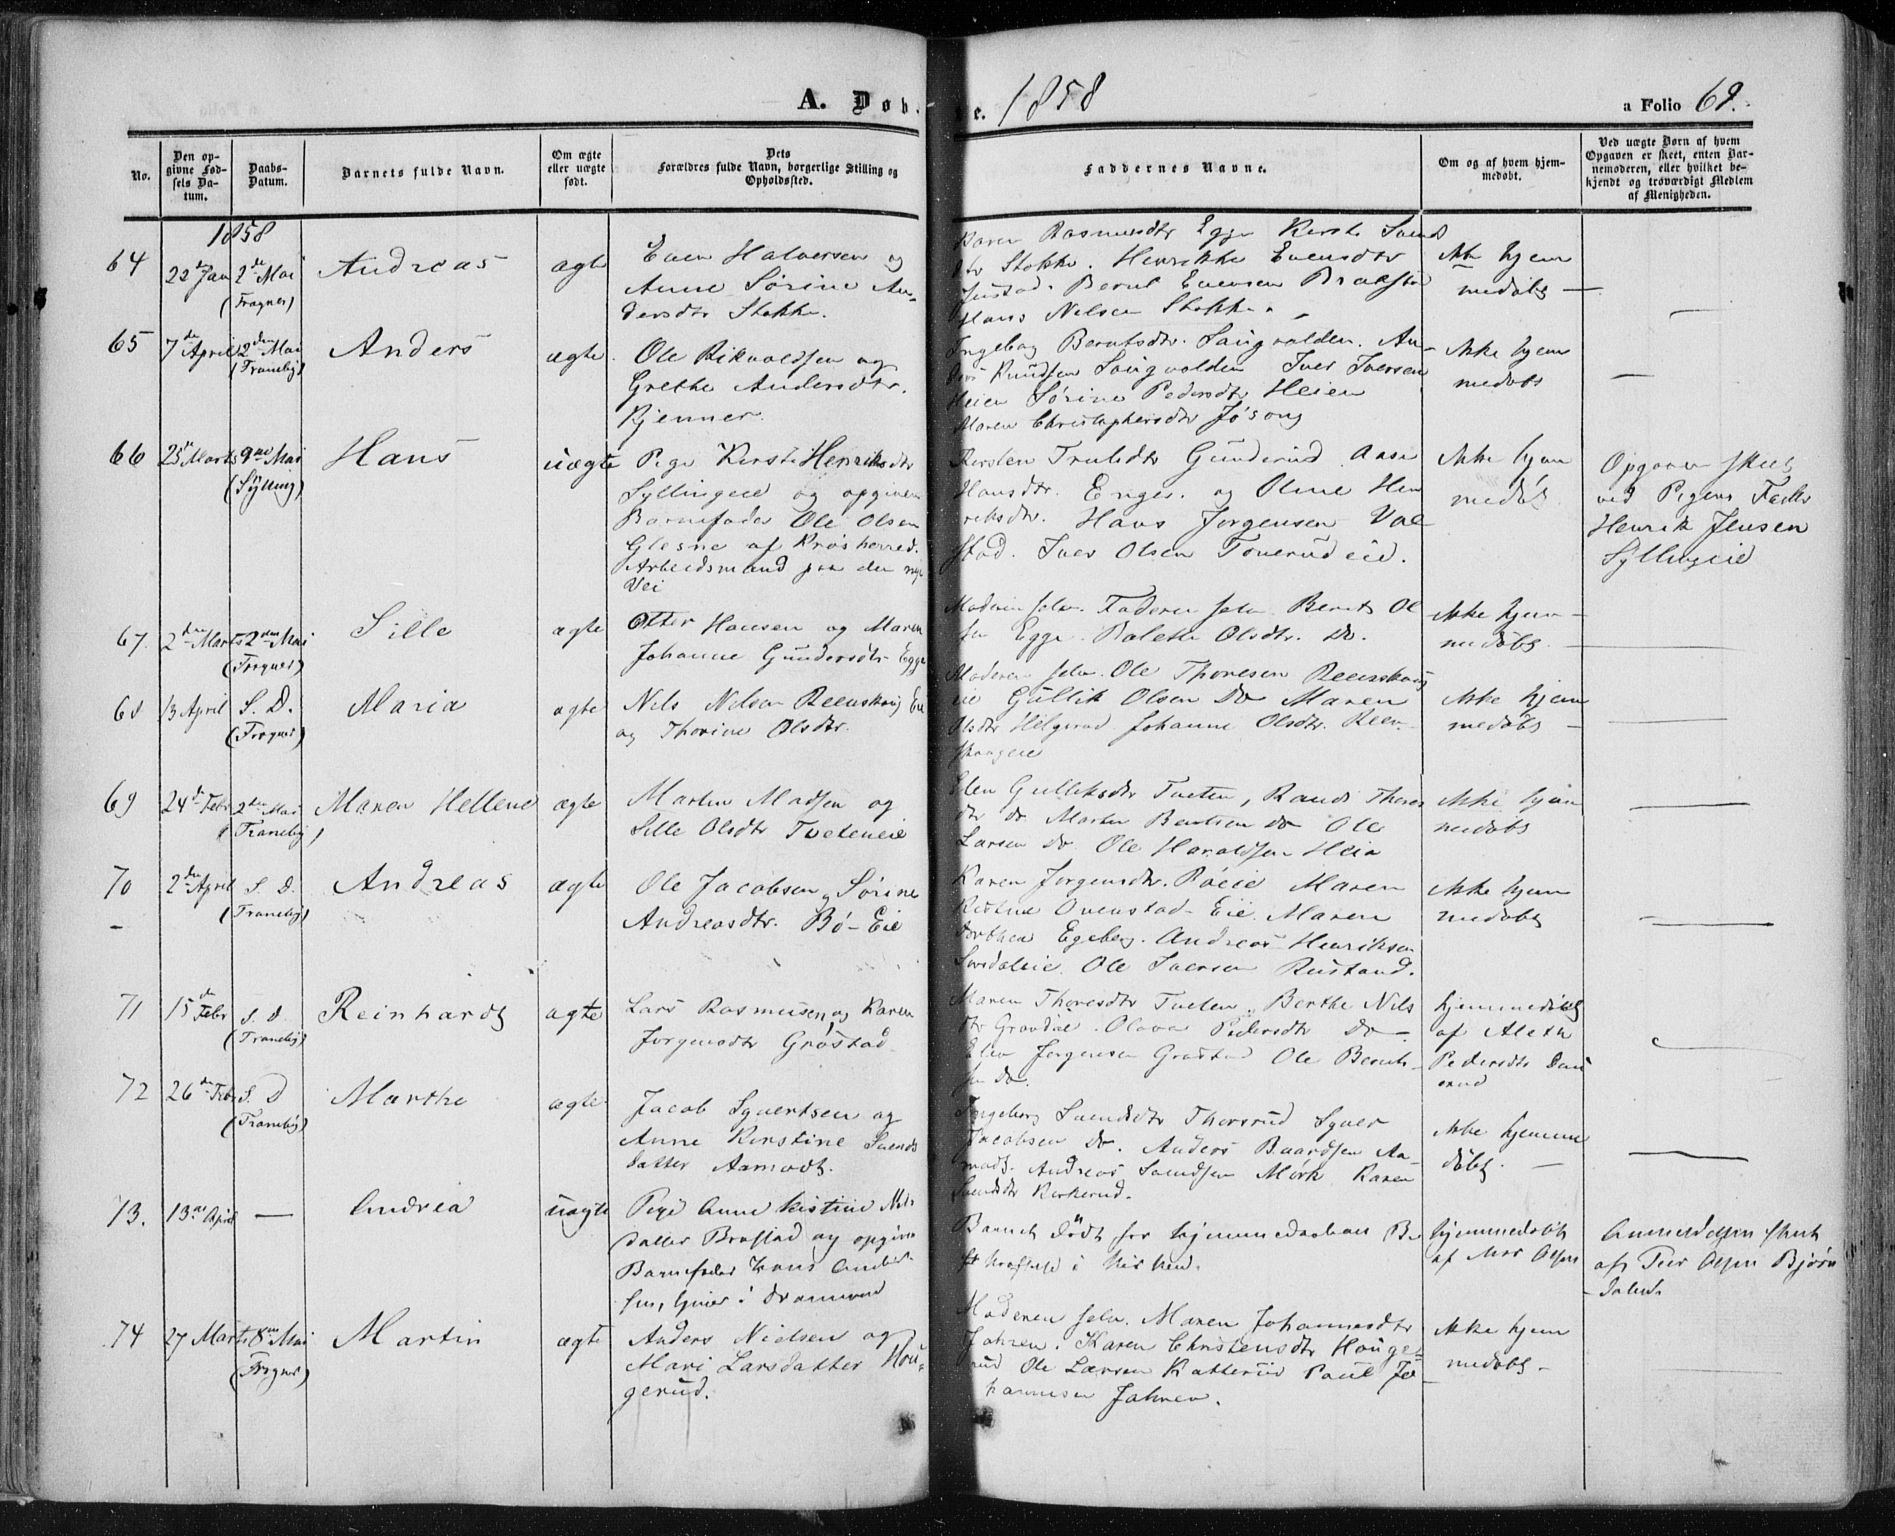 A. Døb
e. 1858
a Folio 68.
No.
Den opgivne Fødsels Datum.
Daabs-Datum.
Barnets fulde Navn.
Om ægte eller uægte født.
Dets Forældres fulde Navn, borgerlige Stilling og Opholdssted.
Faddernes Navne.
Om og af hvem hjemmedøbt.
Ved uægte Børn af hvem Opgaven er skeet, enten Barnemoderen, eller hvilket bekjendt og troværdigt Medlem af Menigheden.
1858
64 22de Jan 2de Mai (Frogner) Andreas ægte
Even Halversen og
Anne Sørine An-
dersdtr Stokke.
Karen Rasmusdtr Egge Kirste Svends
dtr Stokke. Henrikke Evensdtr
Justad. Bernt Evensen Braastad
Hans Nelsen Stokke.
Ikke hjem
medøbt —
65 7de April 2den Mai (Traneby) Anders ægte
Ole Rikvoldsen og
Grethe Andersdtr.
Kjenner.
Ingebog Berntsdtr. Laugvolden. An-
ders Knudsen Laugvolden Iver Iversen
Heien Sørine Pedersdtr Heien
Maren Christophersdtr Jøsong
Ikke hjem
medøbt
66 25de Marts 9de Mai (Sylling) Hans uægte
Pige Kirsti Henriksdtr
Syllingeie og opgiven
Barnefader Ole Olsen
Glesne af Krøsherred.
Arbeidsmand paa den nye
Vei
Kersten Trulsdtr Gunderud Aase
Hansdtr. Enger. og Oline Hen
riksdtr. Hans Jorgensen Val
stad. Iver Olsen Toverudeie.
Ikke hjem
medøbt
Opgaven skeet
ved Pigens Fader
Henrik Jensen
Syllingeie
67 2den Marts 2den Mai (Frogner) Sille ægte
Otter Hansen og Maren
Johanne Gundersdtr Egge
Moderen selv. Faderen selv. Bernt Ol
sen Egge. Olsdtr. Do.
Ikke hjem-
medøbt.
68 13 April S. D. (Frogner) Maria ægte
Nils Nilsen Reenskoug Eie
og Thorine Olsdtr.
Moderen selv. Ole Thoresen Reenskoug
eie Gullik Olsen Do Maren
Olsdtr Helgerud Johanne Olsdtr. Reen-
skougeie
Ikke hjem
medøbt —
69 24de Febr 2den Mai (Traneby) Maren Hellene ægte
Martin Madsen og
Sille Olsdtr Tveteneie
Elen Gulliksdtr Tveten, Randi Thores
dtr Do Martin Bentsen Do Ole
Larsen Do. Ole Haraldsen Heia
Ikke hjem
medøbt
70 2den April S. D. (Traneby) Andreas ægte
Ole Jacobsen, Sørine
Andreasdtr. Bø-Eie
Karen Jorgensdtr. Bøeie Maren
Kistine Ovenstad-Eie. Maren
Dorthea Egeberg. Andreas Henriksen
Ole Iversen Rustand.
Ikke hjem
medøbt
71 15de Febr S. D. (Traneby) Reinhardt ægte
Lars Rasmusen og Karen
Jorgensdtr Grøstad
Maren Thoresdtr Tveten. Berthe Nils
dtr Grøvdal. Olava Pedersdtr Do —
Jorgensen Grøstad Ole Bernt-
sen Do.
hjemmedøbt
af Aleth
Pedersdtr
72 26de Febr S. D (Tranebÿ) Marthe ægte
Jacob Syvertsen og
Anne Kirstine Svends
datter Aamodt.
Ingeborg Svendsdtr Thorsrud Syver
Jacobsen Do. Anders Baardsen Aa-
modt. Andreas Svendsen Mørk Karen
Svendsdtr Kirkerud.
Ikke hjemme
døbt. —
73. 13de April — Andrea uægte
Pige Anne Kistine Nils
datter Brastad og opgiven
Barnefader Hans Ander-
sen, Lieier i Drammen
Barnet dødt for hjemmedaaben Be
kræftelse i Kirken.
hjemmedøbt
af Olsen
Anmeldelsen skeet
af Peer Olsen Bjørn
dalen.
74 27 Marts 8de Mai (Frogner) Martin ægte
Anders Nielsen og
Mari Larsdatter Hou-
gerud.
Moderen selv. Maren Johannesdtr
Jahren. Karen Christensdtr Houge-
rud Ole Larsen Katterud Paul Jo-
hannesen Jahren.
Ikke hjem
medøbt —